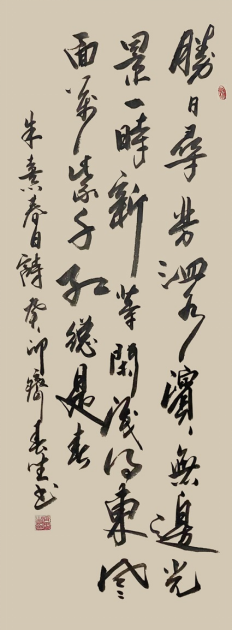 勝日尋芳泗水濱無邊光
景一時新等閑識得東風
面萬紫千紅總是春
朱熹春日詩癸卯齊春生书